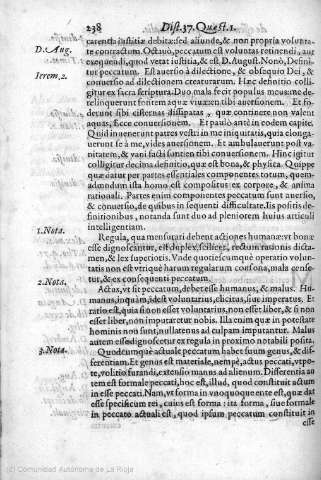 238 Dist. 37. Quæst. 1.
carentia iustitiæ debitæ: sed aliunde, & non propria voluntate contractum Octauò, peccatum est voluntas retinendi, aut
D. Aug.
exequendi, quod vetat iustitia, & est D. August. Nonò, Definitur peccatum. Est auersio à dilectione, & obsequio Dei, &
Ierem. 2.
conuersio ad dilectionem creaturarum. Hæc definitio colligitur ex sacra scriptura. Duo mala fecit populus meus: me dereliquerunt fontem aquæ viuæ: en tibi auersionem. Et foderunt sibi cisternas dissipatas, quæ continere non valent
aquas, Ecce conuersionem. Et paulò ante in eodem capite.
Quid inuenerunt patres vestri in me iniquitatis, quia elongauerunt se à me, vides auersionem. Et ambulauerunt post vanitatem, & vani facti sunt: en tibi conuersionem. Hinc igitur
colligitur decima definitio, quæ est bona, & physica. Quippe
quæ datur per partes essentiales componentes totum, quemadmodum ista homo est compositus ex corpore, & anima
rationali. Partes enim componentes peccatum sunt auersio,
& conuersio, de quibus in sequenti difficultate. Iis positis definitionibus, notanda sunt duo ad pleniorem huius articuli
intelligentiam.
1. Nota.
Regula, qua mensurari debent actiones humanæ: vt bonæ
esse dignoscantur, est duplex, scilicet, rectum rationis dictamen, & lex superioris. Vnde quotiescumque operatio voluntatis non est vtrique harum regularum consona, mala censetur, & ex consequenti peccatum.
2. Nota.
Actus, vt sit peccatum, debet esse humanus, & malus. Humanus, inquàm, idest voluntarius, elicitus, siue imperatus. Et
ratio est, quia si non esset voluntarius, non esset liber, & si non
esset liber, non imputaretur nobis. Illa enim quæ in potestate
hominis non sunt, nullatenus ad culpam imputantur. Malus
autem esse dignoscetur ex regula in proximo notabili posita.
3. Nota.
Quodcumque actuale peccatum habet suum genus, & differentiam. Et genus est materiale, nempè, actus peccati, vt pote, volitio furandi, extensio manus ad alienum. Differentia autem est formale peccati, hoc est, illud, quod constituit actum
in esse peccati. Nam, vt forma in vnoquoque ente est, quæ dat
esse specificum rei, cuius est forma: ita forma, siue formale
in peccato actuali est, quod ipsum peccatum constituit in
esse
(c) Comunidad Autónoma de La Rioja